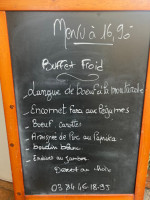 Menu à 16,90
Buffet froid
- Langue de boeuf à la moutarde
- Encornet farci aux légumes
- Boeuf carottes
- de Porc au Paprika
- boudin blanc
- au Jambon
Dessert au choix
03 84 46 18 95